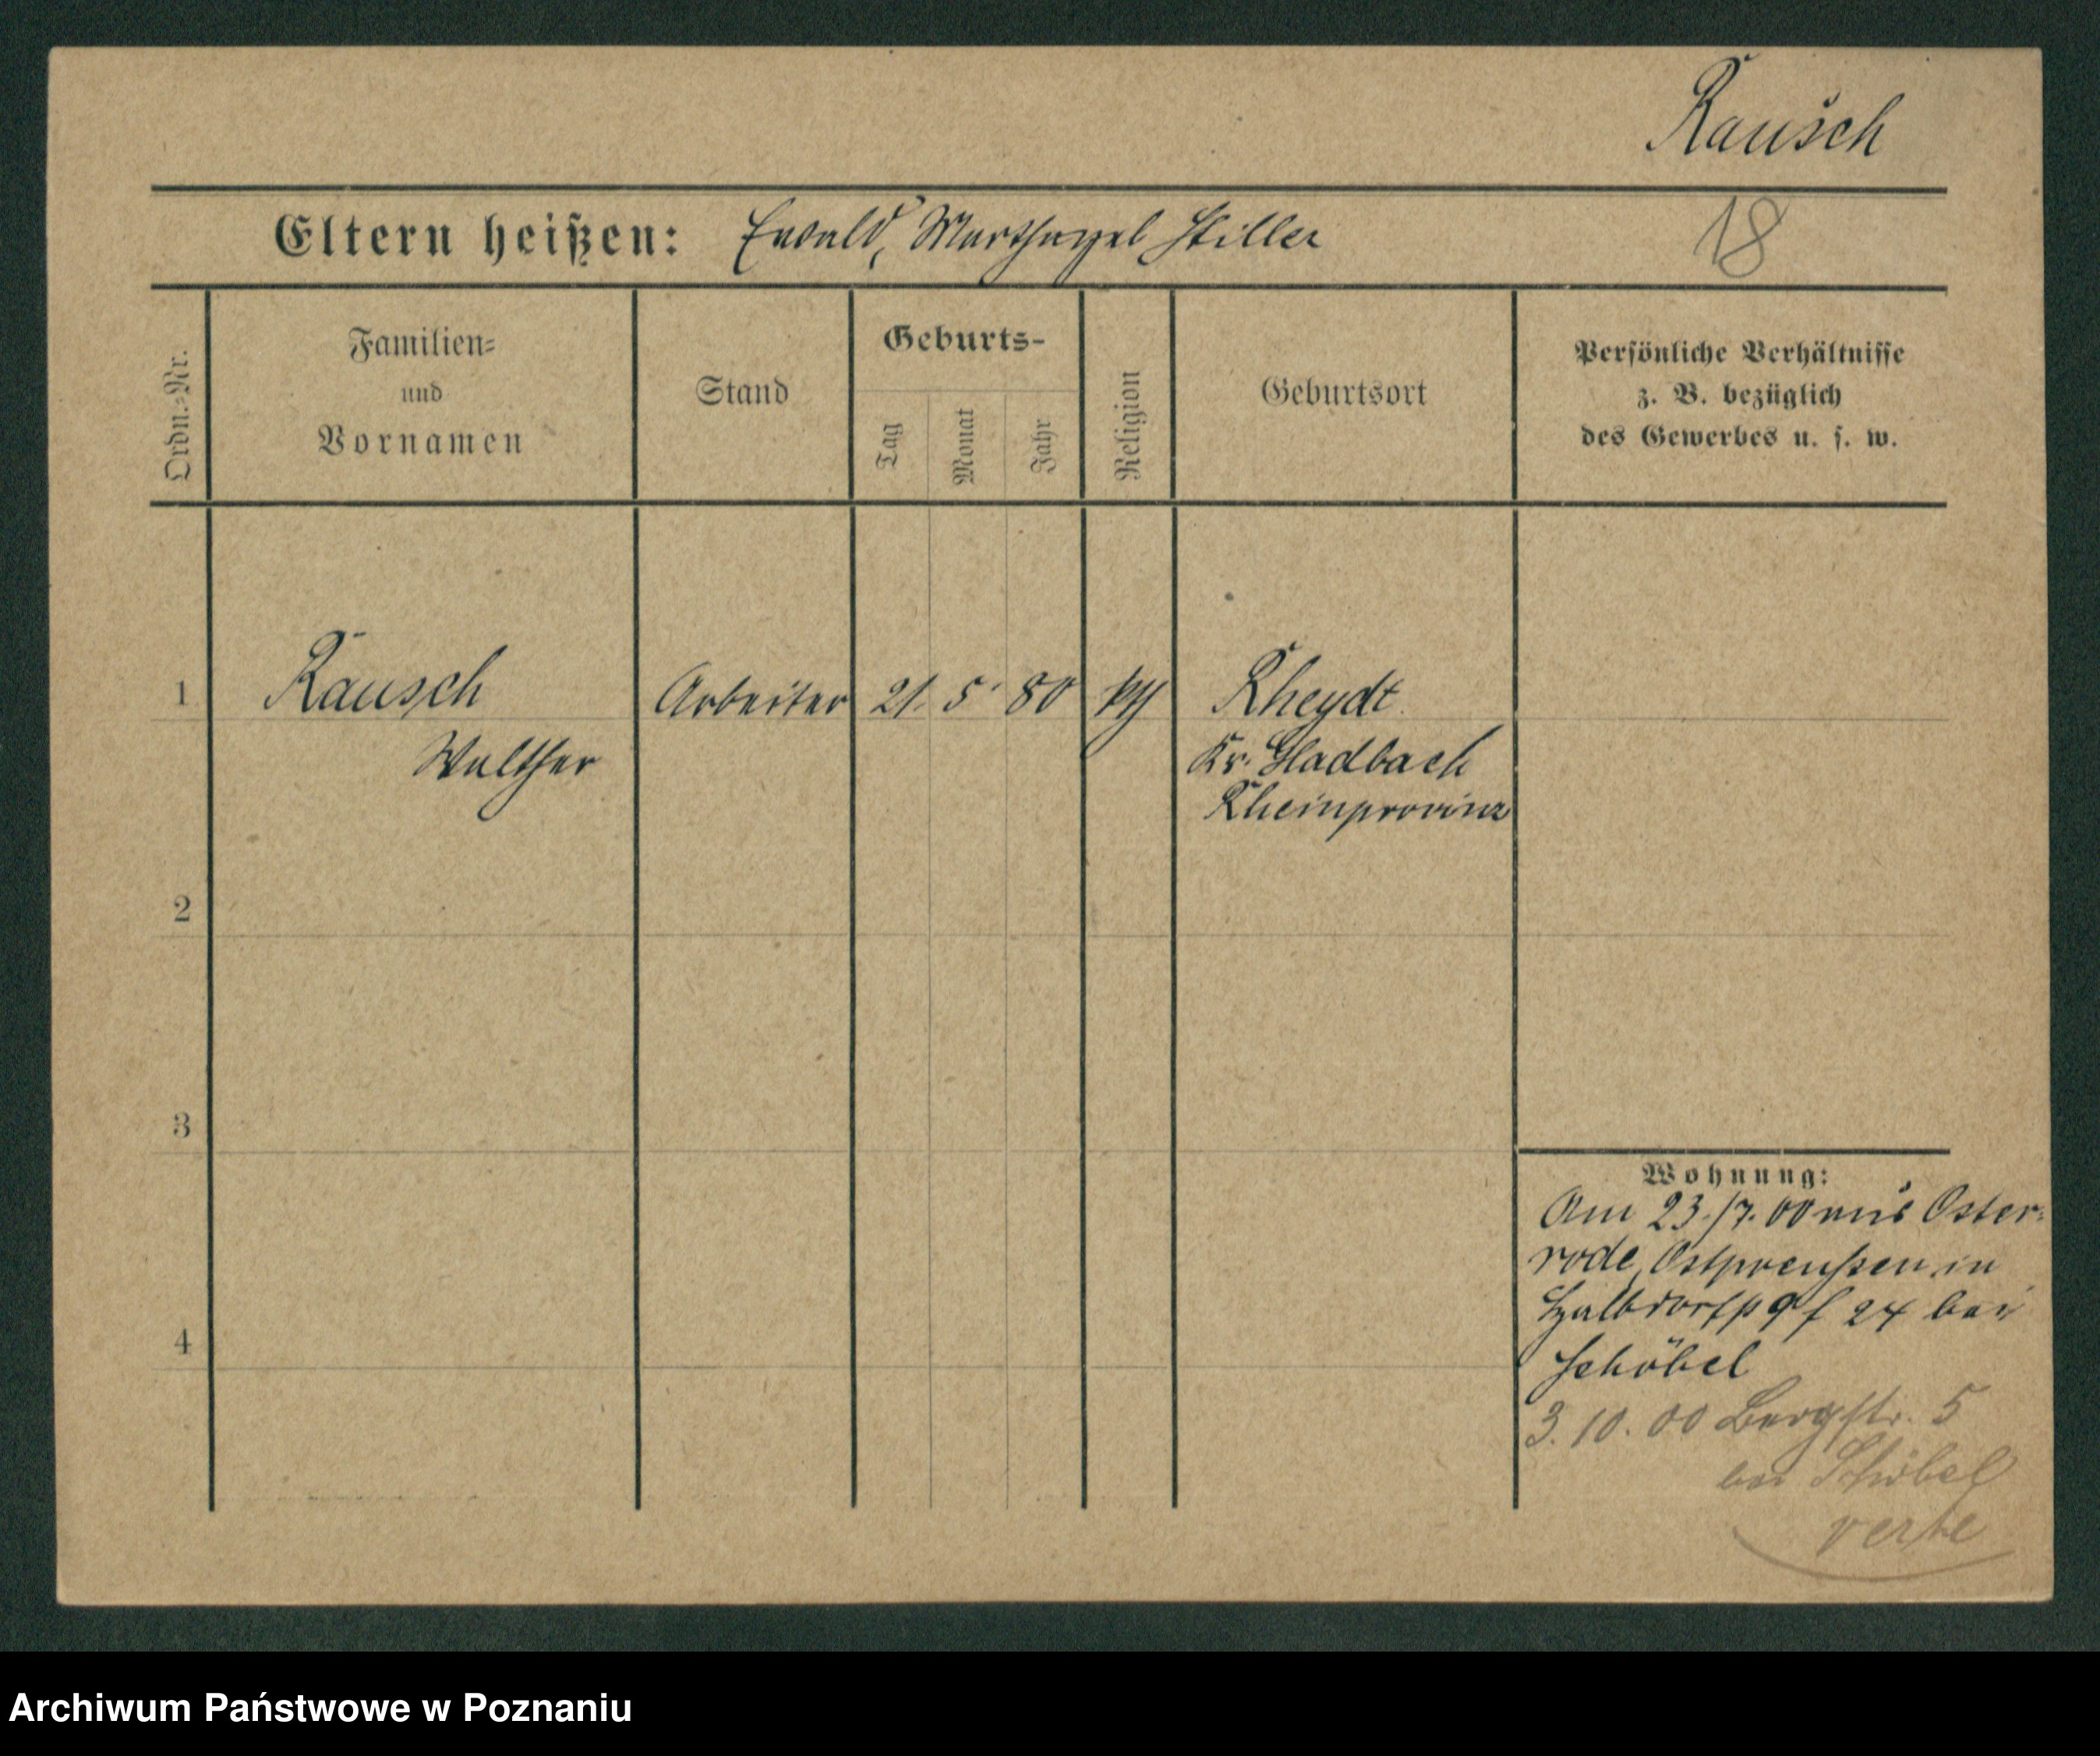 Rausch
Eltern heißen: Ewald, Martha geb Stiller
18
Ordn.-Nr.
Familien-
und
Vornamen
Stand
Geburts-
Tag
Monat
Jahr
Religion
Geburtsort
Persönliche Verhältnisse
z. B. bezüglich
des Gewerbes u. s. w.
1 Rausch Arbeiter 21. 5. 80 Rheydt
Walther Kr. Gladbach
Rheinprovinz
2
3
4
Wohnung:
Am 23./7. 00 aus Oster-
rode, Ostpreußen in
24 bei
Schöbel
3. 10. 00 Bergstr. 5
bei Schöbel
verte
Archiwum Państwowe w Poznaniu